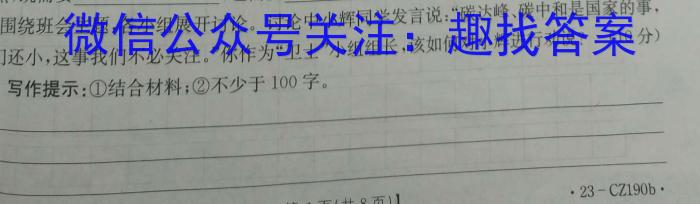 围绕班会 题 各小组展开讨论 讨论中 辉同学发言说:"碳达峰、碳中和是国家的事,
微信公众号关注:趣找答案
们还小,这事我们不必关注。 你作为"卫士"小组组长,该如何 辉进行 分)
写作提示:①结合材料;②不少于100字。
页(共8页)】
·23-CZ190b·